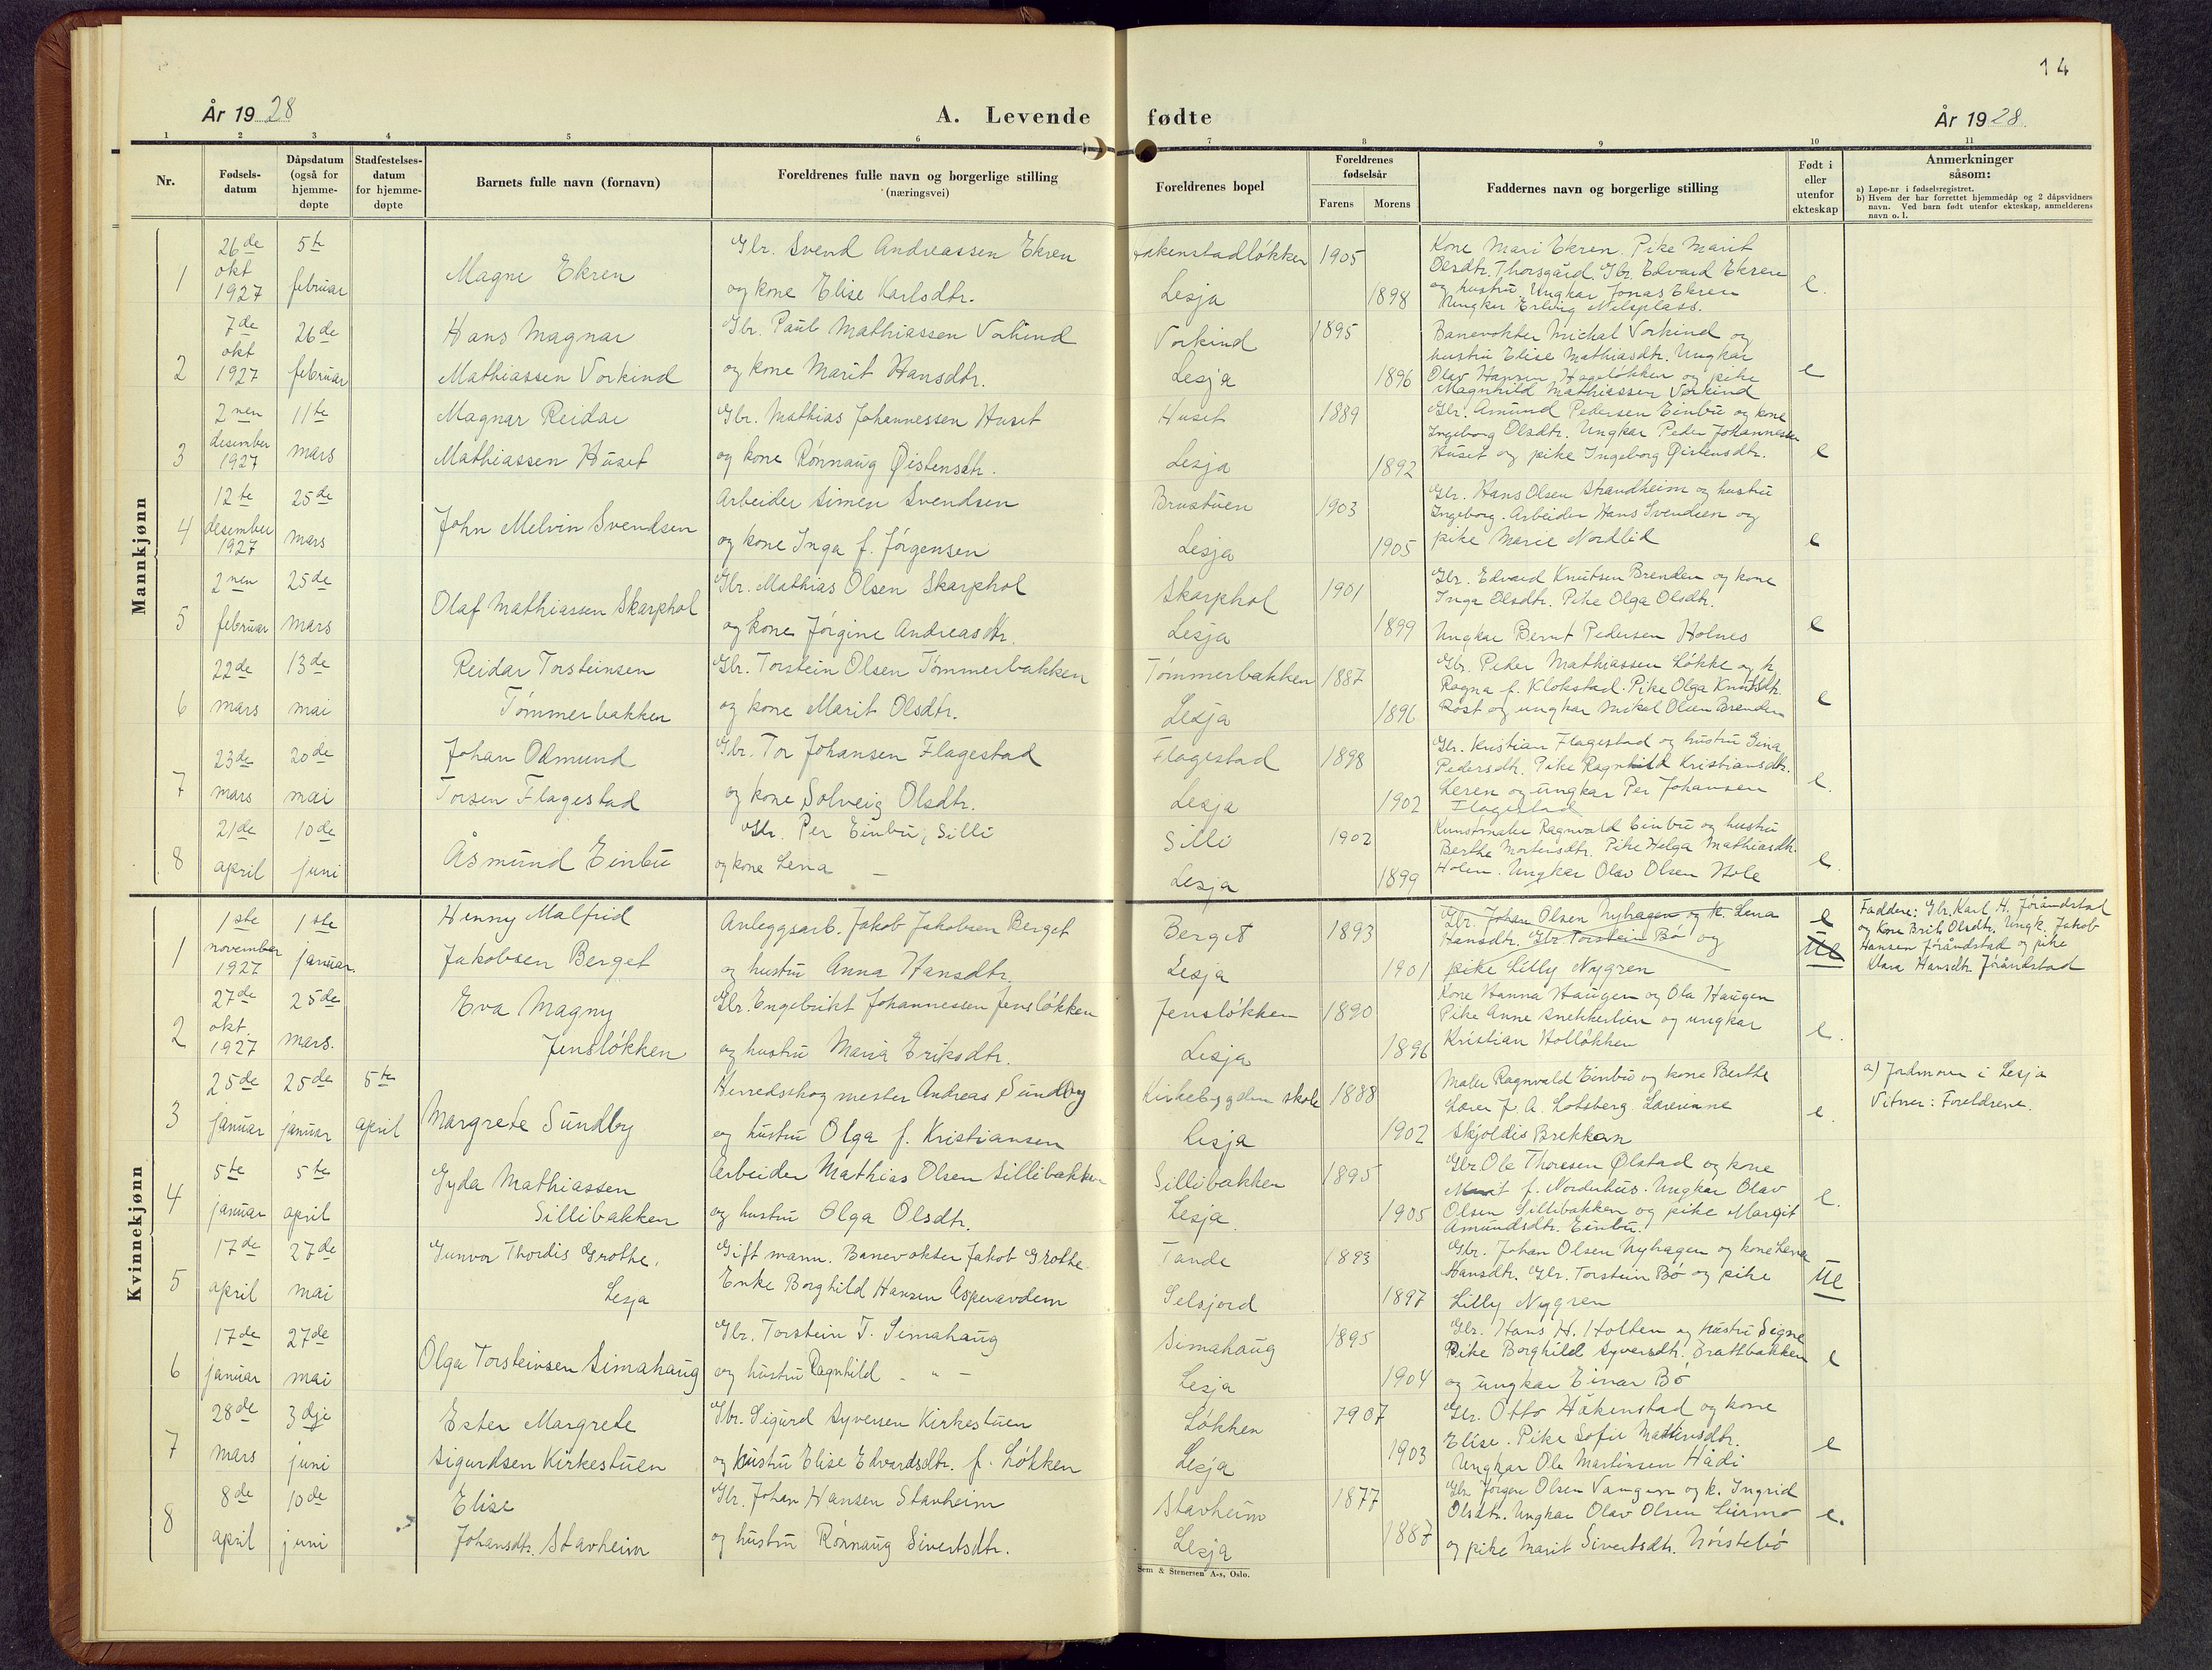 14
År 1928
A. Levende fødte
År 1928.
1 2 3 4 5 6 7 8 9 10 11
Nr.
Fødsels-
datum
Dåpsdatum
(også for
hjemme-
døpte
Stadfestelses-
datum
for hjemme-
døpte
Barnets fulle navn (fornavn)
Foreldrenes fulle navn og borgerlige stilling
(næringsvei)
Foreldrenes bopel
Foreldrenes
fødselsår
Farens Morens
Faddernes navn og borgerlige stilling
Født i
eller
utenfor
ekteskap
Anmerkninger
såsom:
a) Løpe-nr i fødselsregistret.
b) Hvem der har forrettet hjemmedåp og 2 dåpsvidners
navn. Ved barn født utenfor ekteskap, anmelderens
navn o. l.
Mannkjønn
1
26de
okt
1927
5te
februar
Magne Ekren
Gbr. Svend Andreassen Ekren
og kone Elise Karlsdtr.
Lesja
1905
1898
Kone Mari Ekren. Pike Marit
Olsdtr. Thorsgård. Gbr. Edvard Ekren
og hustru. Ungkar Jonas Ekren
Ungkar Erling Nilsplass.
e.
2
7de
okt
1927
26de
februar
Hans Magnar
Mathiassen Vorkind
Gbr. Paul Mathiassen Vorkind
og kone Marit Hansdtr.
Vorkind
Lesja
1895
1896
Banevokter Michal Vorkind og
hustru Elise Mathiasdtr. Ungkar
Olav Hansen Hageløkken og pike
Magnhild Mathiassen Vorkind
e
3
2nen
desember
1927
11te
mars
Magnar Reidar
Mathiassen Huset
Gbr. Mathias Johannessen Huset
og kone Rønnaug Øistensdtr.
Huset
Lesja
1889
1892
Gbr. Amund Pedersen Einbu og kone
Ingeborg Olsdtr. Ungkar Peder Johannessen
Huset og pike Ingeborg Øistensdtr.
e
4
12te
desember
1927
25de
mars
John Melvin Svendsen
Arbeider Simen Svendsen
og kone Inga f. Jørgensen
Brustuen
Lesja
1903
1905
Gbr. Hans Olsen Strandheim og hustru
Ingeborg. Arbeider Hans Svendsen og
pike Marie Nordlid
e
5
2nen
februar
25de
mars
Olaf Mathiassen Skarphol
Gbr. Mathias Olsen Skarphol
og kone Jørgine Andreasdtr.
Skarphol
Lesja
1901
1899
Gbr. Edvard Knutsen Brenden og kone
Inga Olsdtr. Pike Olga Olsdtr.
Ungkar Bernt Pedersen Holnes
e
6
22de
mars
13de
mai
Reidar Torsteinsen
Tømmerbakken
Gbr. Torstein Olsen Tømmerbakken
og kone Marit Olsdtr.
Tømmerbakken
Lesja
1887
1896
Gbr. Peder Mathiassen Løkke og k.
Ragna f. Klokstad. Pike Olga Knutsdtr.
Rost og ungkar Mikal Olsen Brenden
e
7
23de
mars
20de
mai
Johan Odmund
Torsen Flagestad
Gbr. Tor Johansen Flagestad
og kone Solveig Olsdtr.
Flagestad
Lesja
1898
1902
Gbr. Kristian Flagestad og hustru Gina
Pedersdtr. Pike Ragnhild Kristiansdtr.
Leren og ungkar Per Johansen
Flagestad
e.
8
21de
april
10de
juni
Åsmund Einbu
Gbr. Per Einbu, Silli
og kone Lena –
Silli
Lesja
1902
1899
Kunstmaler Ragnvald Einbu og hustru
Berthe Mortensdtr. Pike Helga Mathiasdtr.
Holen. Ungkar Olav Olsen Hole
e.
Kvinnekjønn
1
1ste
november
1927
1ste
januar.
Henny Malfrid
Jakobsen Berget
Anleggsarb. Jakob Jakobsen Berget
og hustru Anna Hansdtr.
Berget
Lesja
1893
1901
Gbr. Johan Olsen Nyhagen og k. Lena
Hansdtr. Gbr. Torstein Bø og
pike Lilly Nygren
e
Ue
Faddere: Gbr. Karl H. Jøråndstad
og Kone Brit Olsdtr. Ungk. Jakob
Hansen Jøråndstad og pike
Klara Hansdtr. Jøråndstad
2
27de
okt.
1927
25de
mars.
Eva Magny
Jensløkken
Gbr. Engebrikt Johannessen Jensløkken
og hustru Maria Eriksdtr.
Jensløkken
Lesja
1890
1896
Kone Hanna Haugen og Ola Haugen
Pike Anne Snekkerlien og ungkar
Kristian Holløkken
e.
3
25de
januar
25de
januar
5te
april
Margrete Sundby
Herredsskogmester Andreas Sundby
og hustru Olga f. Kristiansen
Kirkebygden skole
Lesja
1888
1902
Maler Ragnvald Einbu og kone Berthe
Lærer J. A. Lotsberg Lærerinne
Skjoldis Brekken
e.
a) Jordmoren i Lesja
Vitner: Foreldrene.
4
5te
januar
5te
april
Gyda Mathiassen
Sillibakken
Arbeider Mathias Olsen Sillibakken
og hustru Olga Olsdtr.
Sillibakken
Lesja.
1895
1905
Gbr. Ole Thoresen Ølstad og kone
Marit f. Norderhus. Ungkar Olav
Olsen Sillibakken og pike Margit
Amundsdtr. Einbu.
e.
5
17de
april
27de
mai
Gunvor Thordis Grothe.
Lesja
Gift mann. Banevokter Jakob Grothe
Enke Borghild Hansen Asperavdem
Tande
Selsjord
1893
1897
Gbr. Johan Olsen Nyhagen og kone Lena
Hansdtr. Gbr. Torstein Bø og pike
Lilly Nygren
Ue
6
17de
januar
27de
mai
Olga Torsteinsen Simahaug
Gbr. Torstein T. Simahaug
og hustru Ragnhild - " -
Simahaug
Lesja
1895
1904
Gbr. Hans H. Holten og hustru Signe
Pike Borghild Syversdtr. Brattbakken
og ungkar Einar Bø
e
7
28de
mars
3dje
juni
Ester Margrete
Sigurdsen Kirkestuen
Gbr. Sigurd Syversen Kirkestuen
og hustru Elise Edvardsdtr. f. Løkken
Løkken
Lesja
1907
1903
Gbr. Otto Håkenstad og kone
Elise. Pike Sofie Mathisdtr.
Ungkar Ole Martinsen Hådi
e
8
8de
april
10de
juni
Elise
Johansdtr. Stavheim
Gbr. Johan Hansen Stavheim
og hustru Rønnaug Sivertsdtr.
Stavheim
Lesja
1877
1887
Gbr. Jørgen Olsen Vangen og k. Ingrid
Olsdtr. Ungkar Olav Olsen Lurmo
og pike Marit Sivertsdtr. Nørstebø
e.
Sem & Stenersen A-s, Oslo.